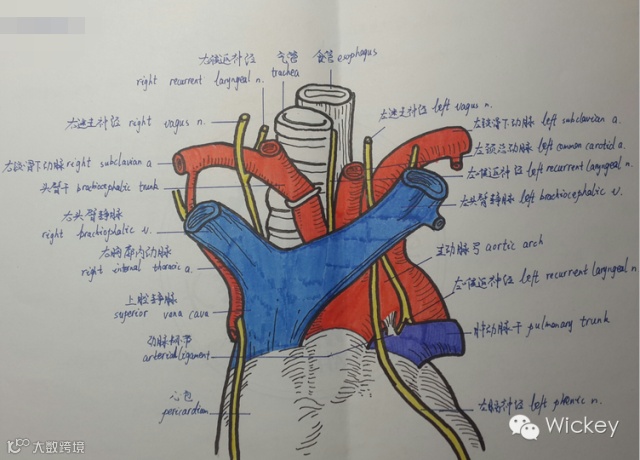 右喉返神经 气管 食管 esophagus
right recurrent laryngeal n. trachea
右迷走神经 right vagus n.
左迷走神经 left vagus n.
右锁骨下动脉 right subclavian a.
头臂干 brachiocephalic trunk
右头臂静脉
right brachiocephalic v.
右胸廓内动脉
right internal thoracic a.
上腔静脉
superior vena cava
动脉韧带
arterial ligament
心包
pericardium
左锁骨下动脉 left subclavian a.
左颈总动脉 left common carotid a.
左喉返神经 left recurrent laryngeal n.
左头臂静脉 left brachiocephalic v.
主动脉弓 aortic arch
左喉返神经 left recurrent laryngeal n.
肺动脉干 pulmonary trunk
左膈神经 left phrenic n.
Wickey
大数跨境